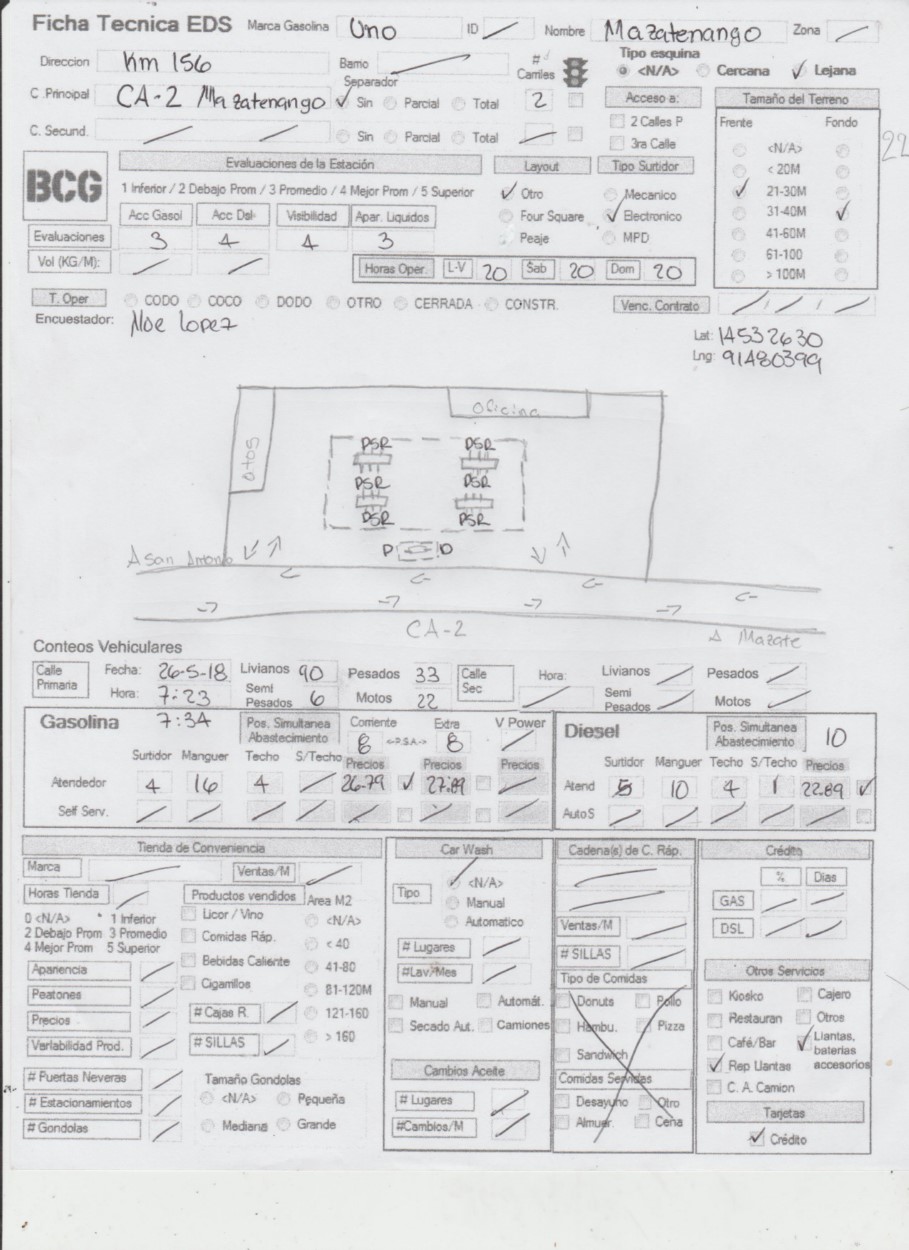 Ficha Tecnica EDS Marca Gasolina Uno ID Nombre Mazatenango Zona
Direccion Km 156 Barrio # Carriles Tipo esquina <N/A> Cercana Lejana
Separador
C. Principal CA-2 Mazatenango Sin Parcial Total 2 Acceso a: Tamaño del Terreno
C. Secund. Sin Parcial Total 2 Calles P Frente Fondo
3ra Calle <N/A>
22
BCG Evaluaciones de la Estación Layout Tipo Surtidor < 20M
1 Inferior / 2 Debajo Prom / 3 Promedio / 4 Mejor Prom / 5 Superior Otro Mecanico 21-30M
Acc Gasol Acc Dsl Visibilidad Apar. Liquidos Four Square Electronico 31-40M
Evaluaciones 3 4 4 3 Peaje MPD 41-60M
Vol (KG/M): Horas Oper. L-V 20 Sab 20 Dom 20 61-100
> 100M
T. Oper CODO COCO DODO OTRO CERRADA CONSTR. Venc. Contrato
Encuestador: Noe Lopez
Lat: 14532630
Lng: 91480399
Oficina
otos
DSR DSR
DSR DSR
DSR DSR
D D
A San Antonio
CA-2
A Mazate
Conteos Vehiculares
Calle Primaria Fecha: 26-5-18 Livianos 90 Pesados 33 Calle Sec Hora: Livianos Pesados
Hora: 7:23 Semi Pesados 6 Motos 22 Semi Pesados Motos
7:34
Gasolina Pos. Simultanea Abastecimiento Corriente 8 Extra 8 V Power Diesel Pos. Simultanea Abastecimiento 10
Surtidor Manguer Techo S/Techo Precios Precios Precios Surtidor Manguer Techo S/Techo Precios
Atendedor 4 16 4 26.79 27.89 Atend 5 10 4 1 22.89
Self Serv. Auto S
Tienda de Conveniencia Car Wash Cadena(s) de C. Ráp. Crédito
Marca Ventas/M <N/A> % Dias
Horas Tienda Productos vendidos Area M2 Tipo Manual GAS
0 <N/A> * 1 Inferior Licor / Vino <N/A> Automatico Ventas/M DSL
2 Debajo Prom 3 Promedio Comidas Ráp. < 40 # Lugares # SILLAS
4 Mejor Prom 5 Superior Bebidas Caliente 41-80 #Lav/Mes Tipo de Comidas Otros Servicios
Apariencia Cigarrillos 81-120M Manual Automát. Donuts Pollo Kiosko Cajero
Peatones # Cajas R. 121-160 Secado Aut. Camiones Hambu. Pizza Restauran Otros
Precios # SILLAS > 160 Sandwich Café/Bar Llantas, baterias accesorios
Variabilidad Prod. Cambios Aceite Comidas Servidas Rep Llantas
# Puertas Neveras Tamaño Gondolas # Lugares Desayuno Otro C. A. Camion
# Estacionamientos <N/A> Pequeña #Cambios/M Almuer. Cena Tarjetas
# Gondolas Mediana Grande Crédito